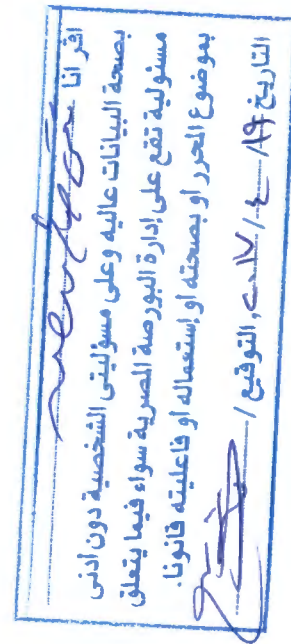 اقر انا
بصحة البيانات عاليه وعلى مسؤليتى الشخصية دون ادنى
مسئولية تقع على إدارة البورصة المصرية سواء فيما يتعلق
بموضوع المحرر او بصحته او إستعماله او فاعليته قانونا.
التاريخ / ٤ / ٢٠١٧, التوقيع /